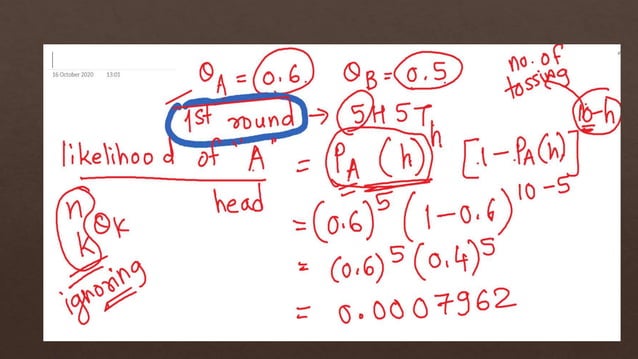 16 October 2020 13:01
θA = 0.6 θB = 0.5
no. of tossing
1st round → 5H 5T
likelihood of "A" = (PA (h))^h [1-PA(h)]^10-h
head
= (0.6)^5 (1-0.6)^10-5
n k θk
= (0.6)^5 (0.4)^5
ignoring
= 0.0007962